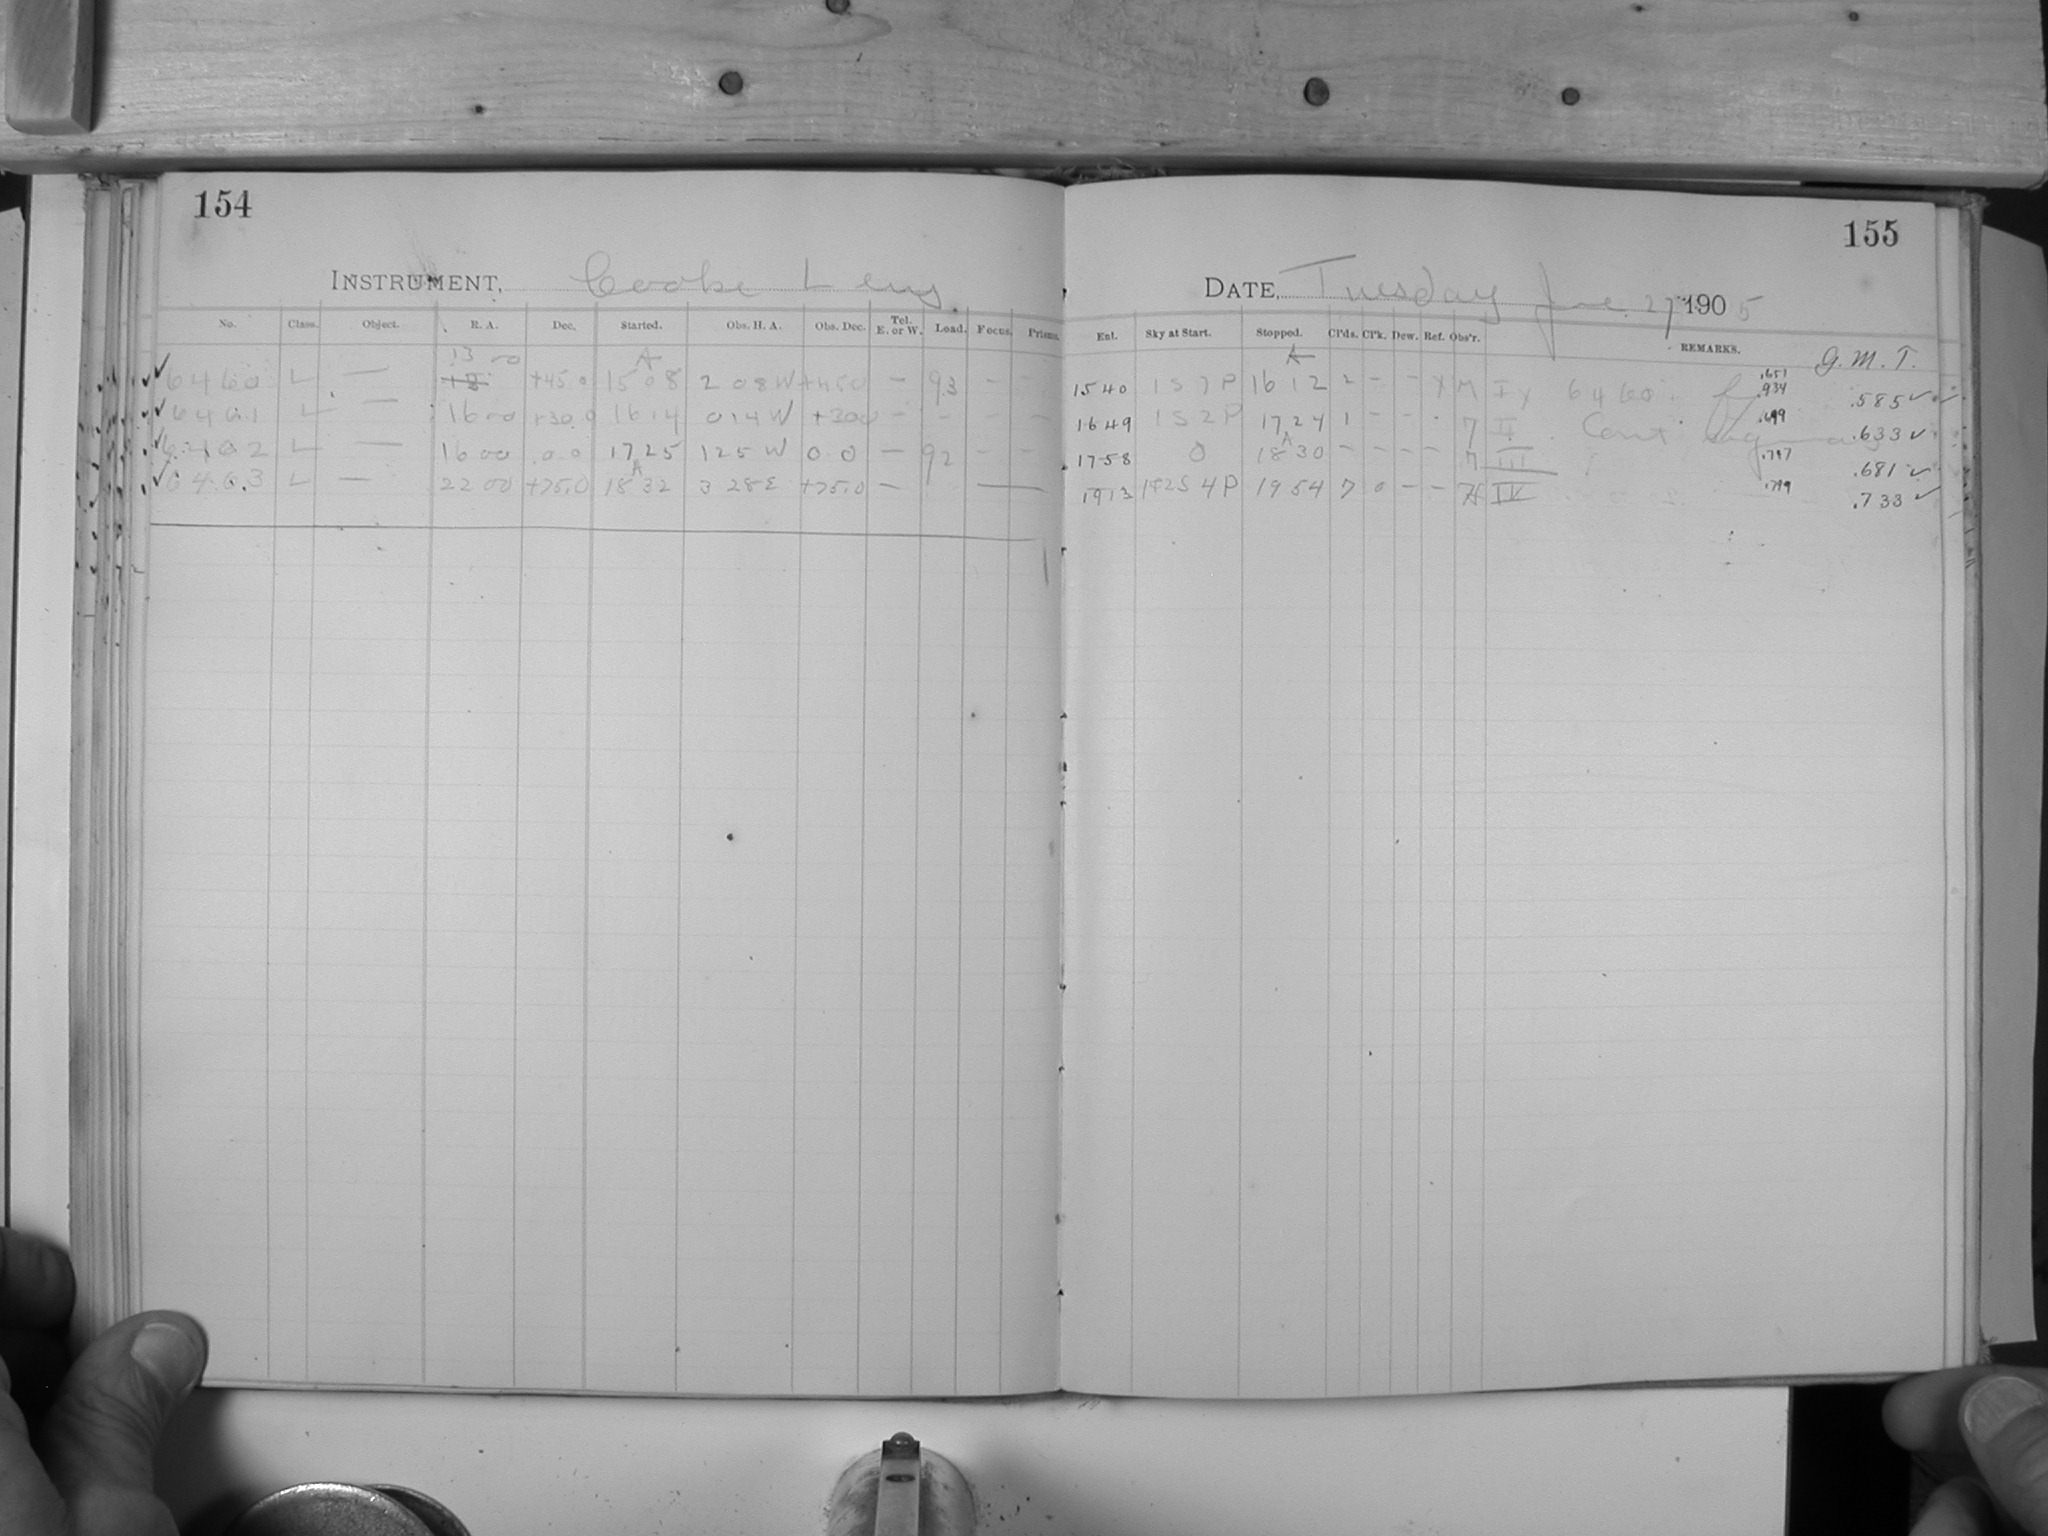 154
INSTRUMENT, Cooke Lens
No. Class. Object. R. A. Dec. Started. Obs. H. A. Obs. Dec. Tel. E. or W. Load. Focus. Prisms.
13 00 A
✓ 6460 L — +45.0 15 08 2 08 W +45.0 — 93 - -
✓ 6461 L — 16 00 +30.0 16 14 0 14 W +30.0 - - - -
✓ 6462 L — 16 00 0.0 17 25 1 25 W 0.0 — 92 - -
A
✓ 6463 L — 22 00 +75.0 18 32 3 28 E +75.0 —
155
DATE, Tuesday June 27 1905
Ent. Sky at Start. Stopped. Cl'ds. Cl'k. Dew. Ref. Obs'r. REMARKS. G. M. T.
15 40 1 S 7 P 16 12 2 - - M I 6460 .651 .934 .585 ✓
16 49 1 S 2 P 17 24 1 - - - 7 II Cont .699 .633 ✓
A
17 58 0 18 30 - - - - 7 III .747 .681 ✓
19 13 4 P 19 54 7 0 - - IV .799 .733 ✓